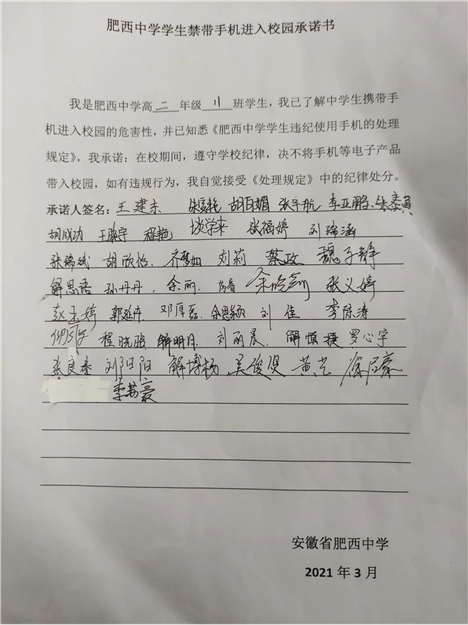 肥西中学学生禁带手机进入校园承诺书
我是肥西中学高二年级11班学生，我已了解中学生携带手
机进入校园的危害性，并已知悉《肥西中学学生违纪使用手机的处理
规定》，我承诺：在校期间，遵守学校纪律，决不将手机等电子产品
带入校园，如有违规行为，我自觉接受《处理规定》中的纪律处分。
承诺人签名：王建东 胡百娟 张宇航 李亚鹏
胡成功 张福婷 刘瑞涵
胡欣怡 刘莉 蔡政 魏子静
解思语 孙丹丹 余丽 张义婷
邓厚磊 刘佳
程晓鸥 解明月 刘雨晨 罗心宇
张良春 刘阳阳 解博杨 吴俊贤 黄艺
李梦豪
安徽省肥西中学
2021 年 3 月